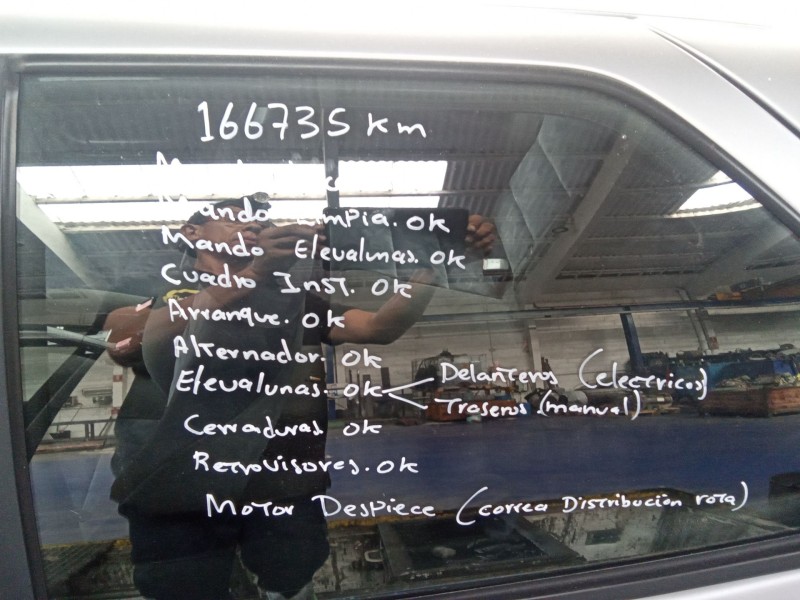 166735 km
Mando Limpia. ok
Mando Elevalunas. ok
Cuadro Inst. ok
Arranque. ok
Alternador. ok
Elevalunas. ok Delanteros (electricos)
Traseros (manual)
Cerraduras ok
Retrovisores. ok
Motor Despiece (correa Distribución rota)